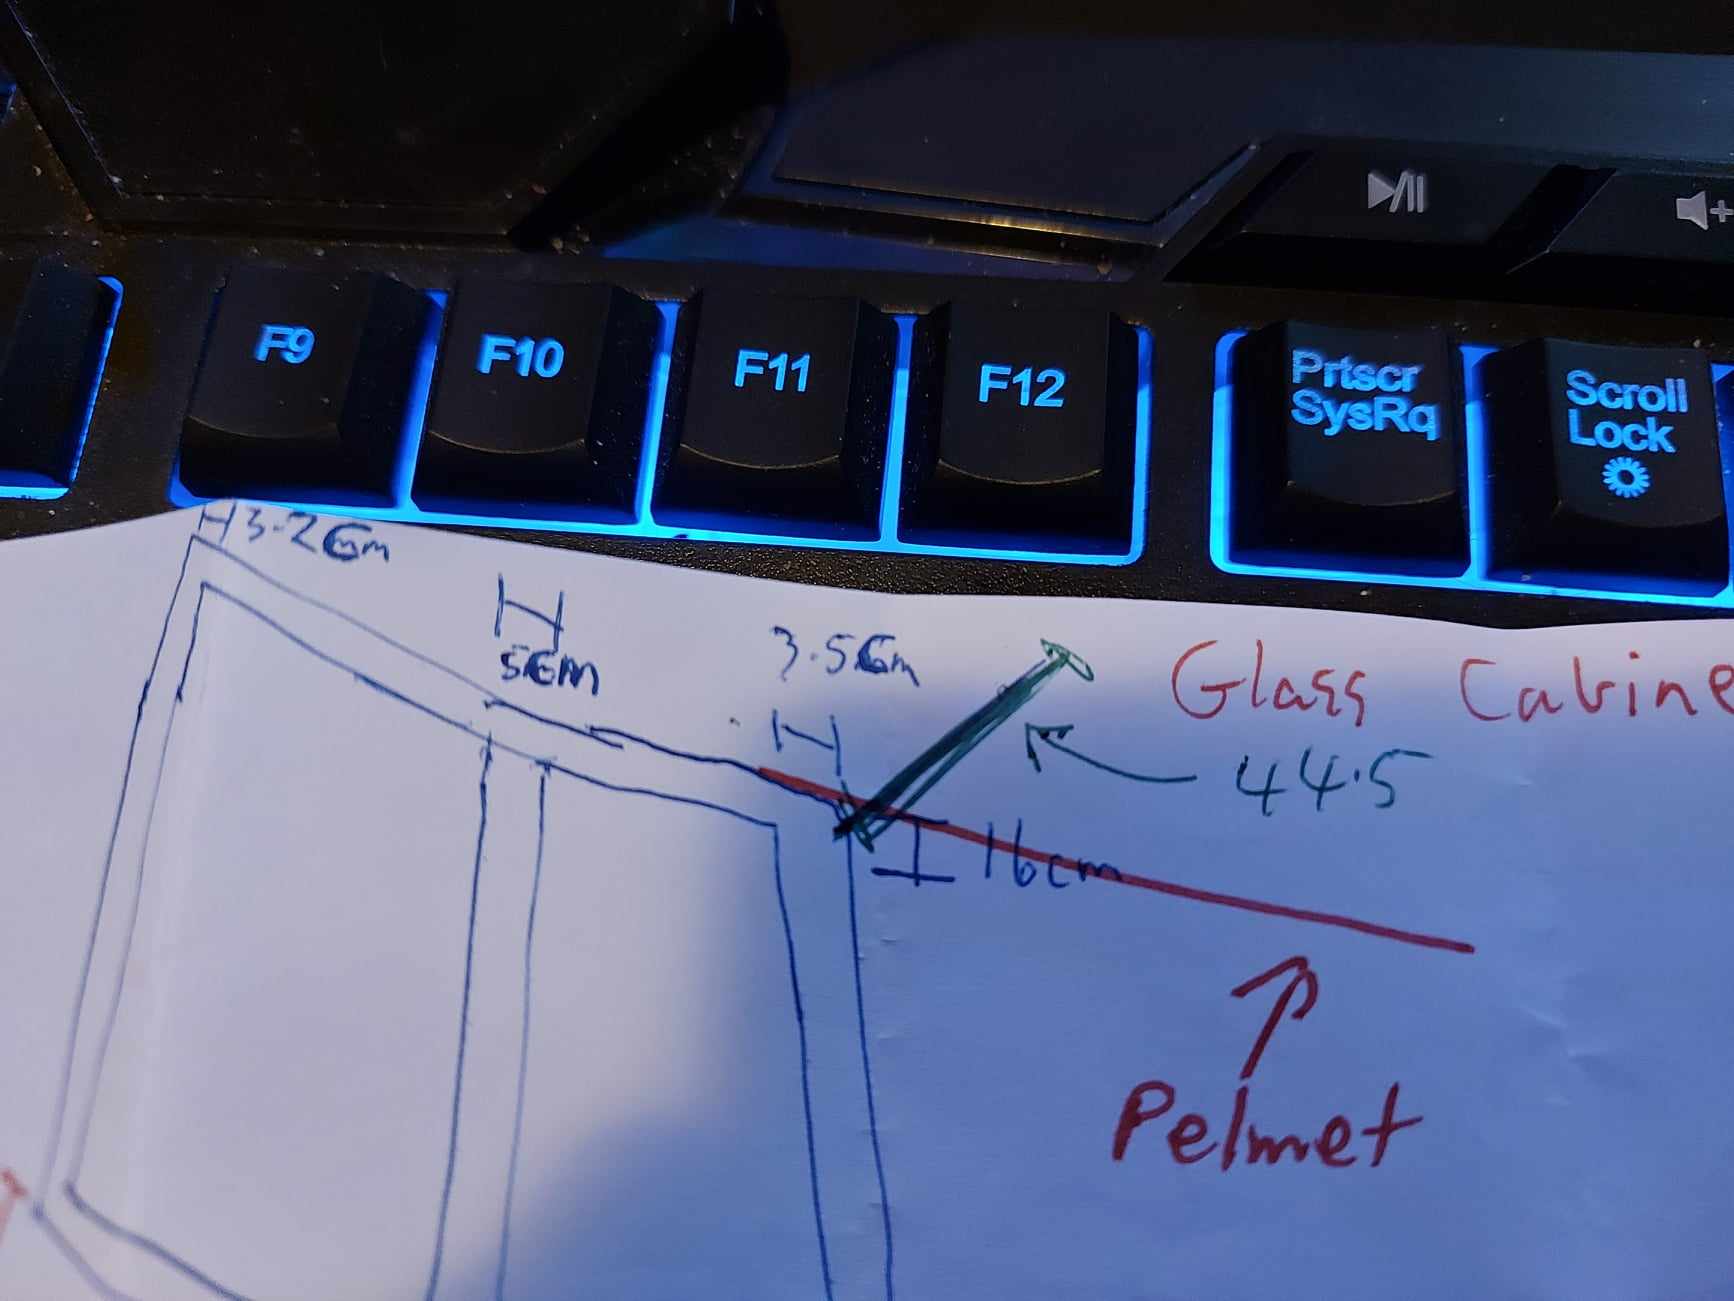 F9
F10
F11
F12
Prtscr
SysRq
Scroll
Lock
3.2cm
5cm
3.5cm
Glass Cabine
44.5
16cm
Pelmet